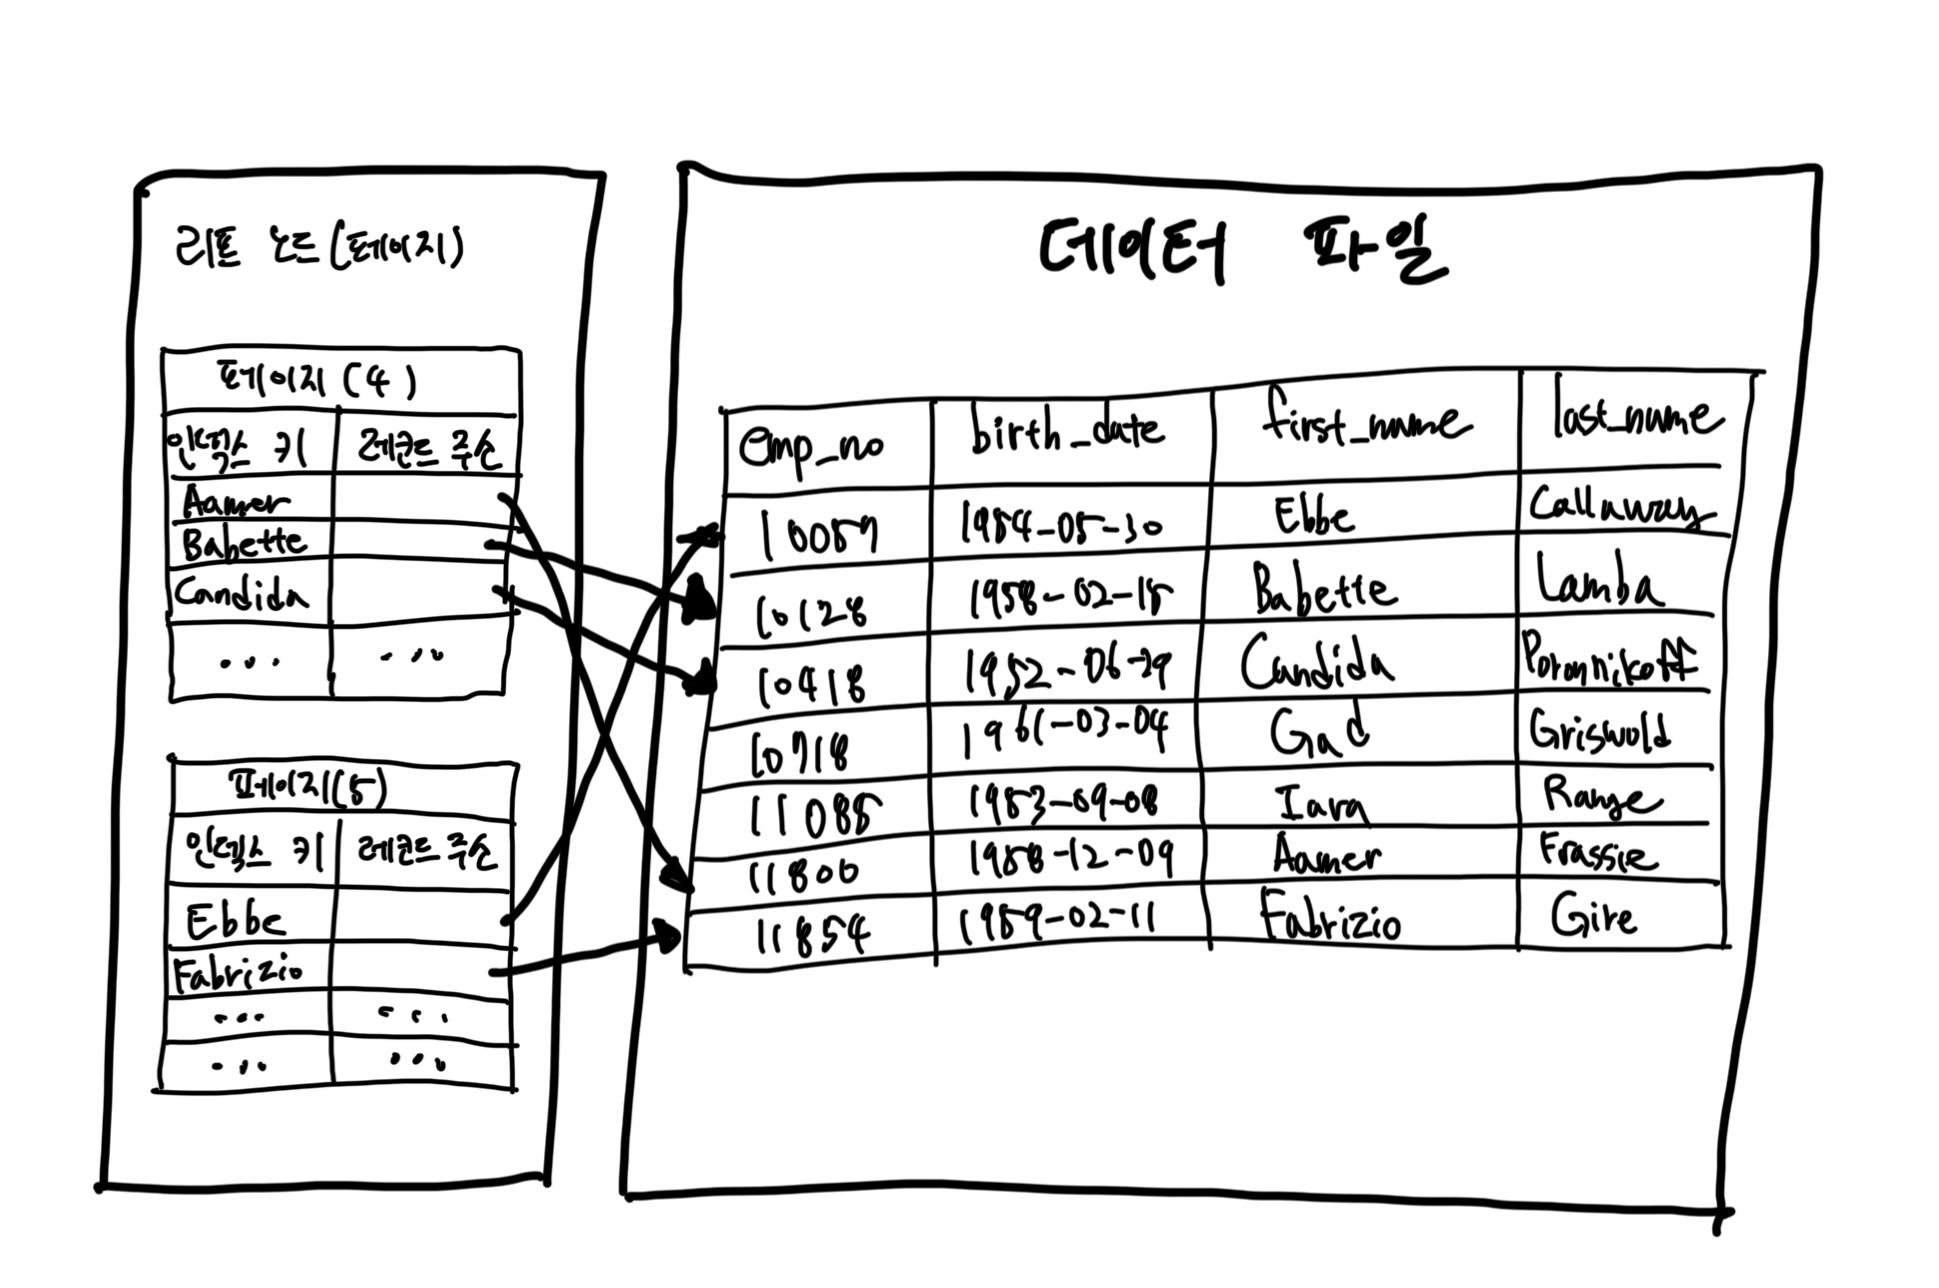 리프 노드(페이지)
페이지(4)
인덱스 키 레코드 주소
Aamer
Babette
Candida
... ...
페이지(5)
인덱스 키 레코드 주소
Ebbe
Fabrizio
... ...
... ...
데이터 파일
emp_no birth_date first_name last_name
10087 1984-05-30 Ebbe Callaway
10128 1958-02-15 Babette Lamba
10418 1952-06-29 Candida
10718 1961-03-04 Gad Griswold
11085 1983-09-08 Iara Range
11800 1988-12-09 Aamer Frassie
11854 1989-02-11 Fabrizio Gire